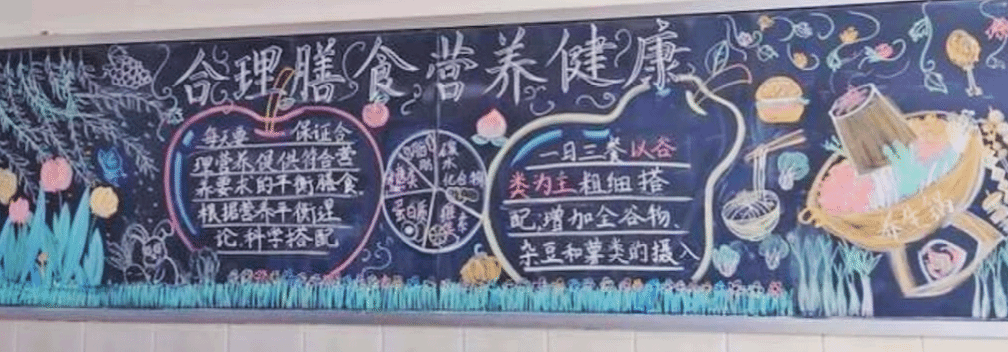 合理膳食营养健康
每天要 保证合
理营养提供符合营
养要求的平衡膳食.
根据营养平衡理
论,科学搭配
脂肪
碳水化合物
糖类
蛋白质
维生素
一日三餐以谷
类为主,粗细搭
配,增加全谷物、
杂豆和薯类的摄入